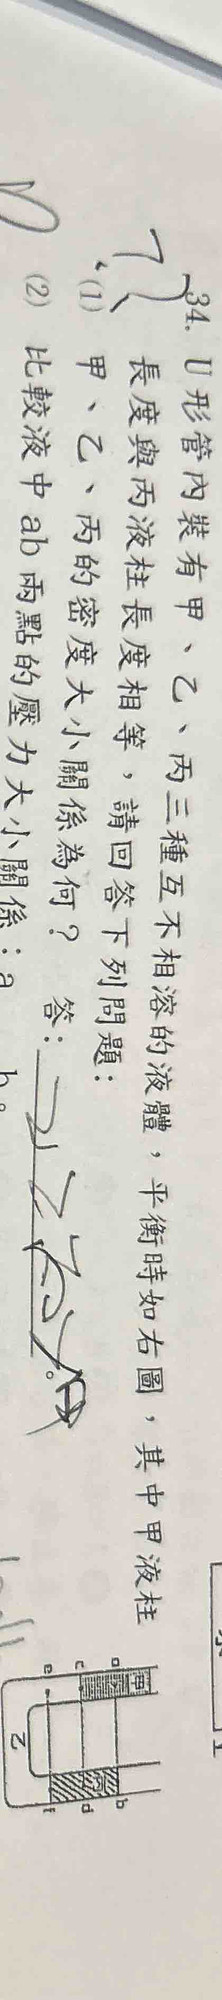 34. U形管內裝有甲、乙、丙三種互不相溶的液體，平衡時如右圖，其中甲液柱
長度與丙液柱長度相等，請回答下列問題：
(1) 甲、乙、丙的密度大小關係為何？ 答：
(2) 比較液中ab兩點的壓力大小關係：a b。
甲
a
b
c
d
e
f
丙
乙